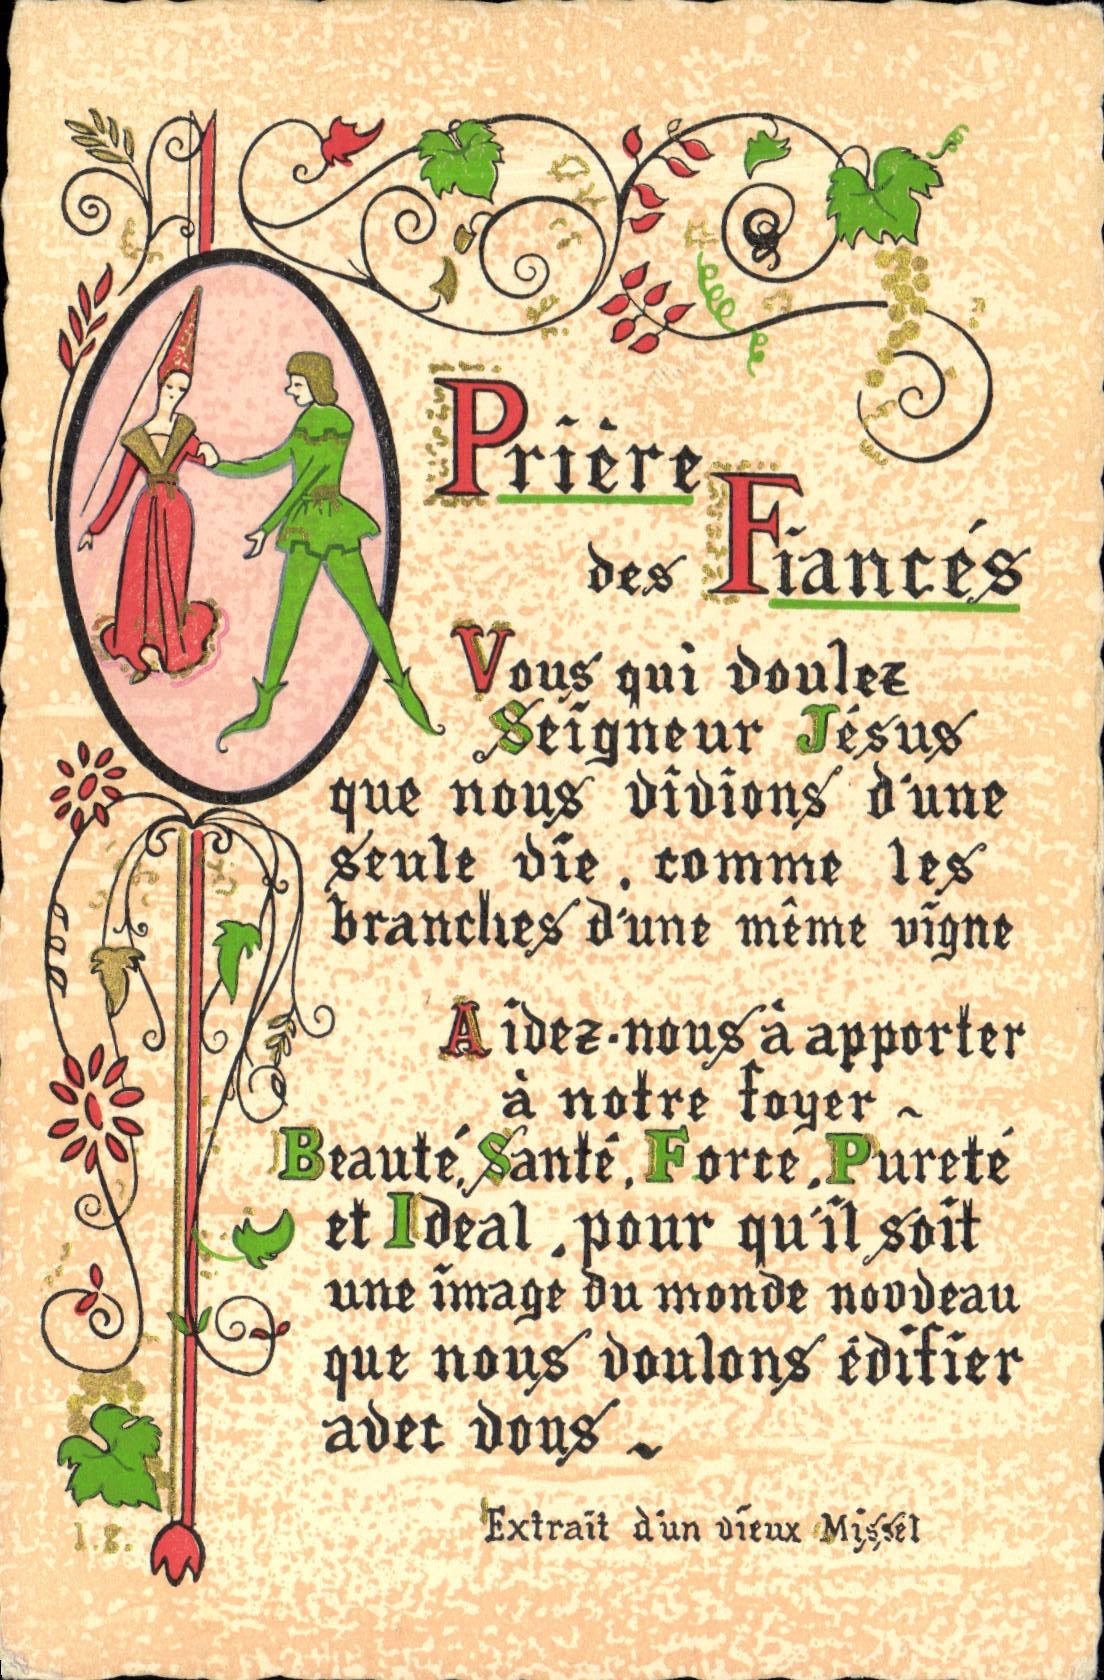 Prière
des Fiancés
Vous qui voulez
Seigneur Jésus
que nous vivions d'une
seule vie, comme les
branches d'une même vigne
Aidez-nous à apporter
à notre foyer ~
Beauté, Santé, Force, Pureté
et Ideal, pour qu'il soit
une image du monde nouveau
que nous voulons édifier
avec vous ~
Extrait d'un vieux Missel